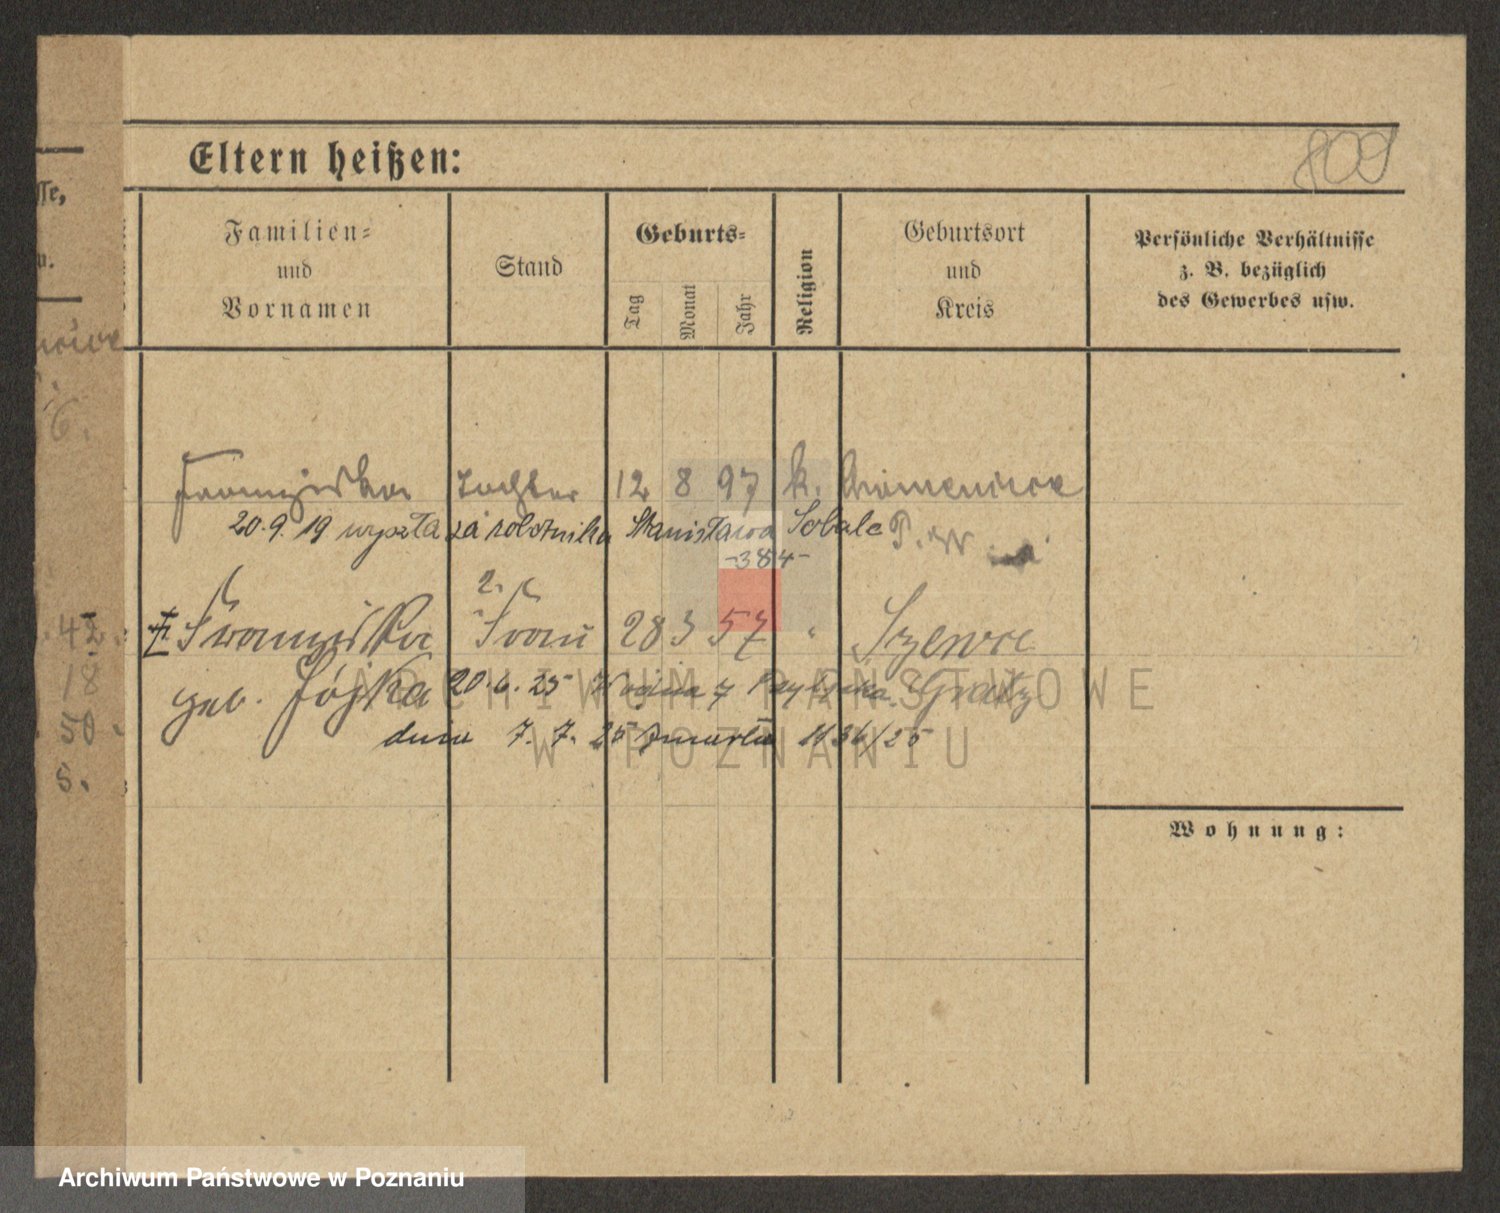 Eltern heißen:
809
Familien=
und
Vornamen
Stand
Geburts=
Tag
Monat
Jahr
Religion
Geburtsort
und
Kreis
Persönliche Verhältnisse
z. B. bezüglich
des Gewerbes usw.
6.
Franziska Tochter 12 8 97 k.
20.9.19 wyszła za robotnika Stanisława Sobale
-384-
2.
Franziska Frau 28 3 57 " Szewce
geb. Jójka 20.6.25 Gratz
dnia 7.7.25 zmarła
42.
18
50
5.
Wohnung:
ARCHIWUM PAŃSTWOWE
W POZNANIU
Archiwum Państwowe w Poznaniu